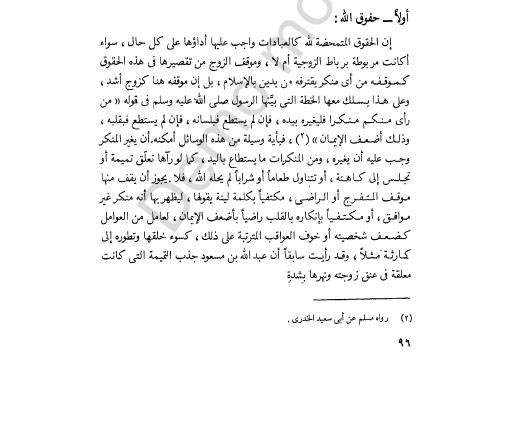 أولاً ــ حقوق الله :
إن الحقوق المتمحضة لله كالعبادات واجب عليها أداؤها على كل حال ، سواء
أكانت مربوطة برباط الزوجية أم لا . وموقف الزوج من تقصيرها فى هذه الحقوق
كموقفه من أى منكر يقترفه من يدين بالإسلام ، بل إن موقفه هنا كزوج أشد ،
وعلى هذا يسلك معها الخطة التى بيَّنها الرسول صلى الله عليه وسلم فى قوله « من
رأى منكم منكرا فليغيره بيده ، فإن لم يستطع فبلسانه ، فإن لم يستطع فبقلبه ،
وذلك أضعف الإيمان » (٢) ، فبأية وسيلة من هذه الوسائل أمكنه أن يغير المنكر
وجب عليه أن يغيره ، ومن المنكرات ما يستطاع باليد ، كما لو رآها تعلّق تميمة أو
تجلس إلى كاهنة ، أو تتناول طعاماً أو شراباً لم يحله الله ، فلا يجوز أن يقف منها
موقف المتفرج أو الراضى ، مكتفياً بكلمة لينة يقولها ، ليظهر بها أنه منكر غير
موافق ، أو مكتفياً بإنكاره بالقلب راضياً بأضعف الإيمان ، لعامل من العوامل
كضعف شخصيته أو خوف العواقب المترتبة على ذلك ، كسوء خلقها وتطوره إلى
كارثة مثلاً ، وقد رأيت سابقاً أن عبد الله بن مسعود جذب التميمة التى كانت
معلقة فى عنق زوجته ونهرها بشدةٍ
(٢) رواه مسلم عن أبى سعيد الخدرى .
٩٦